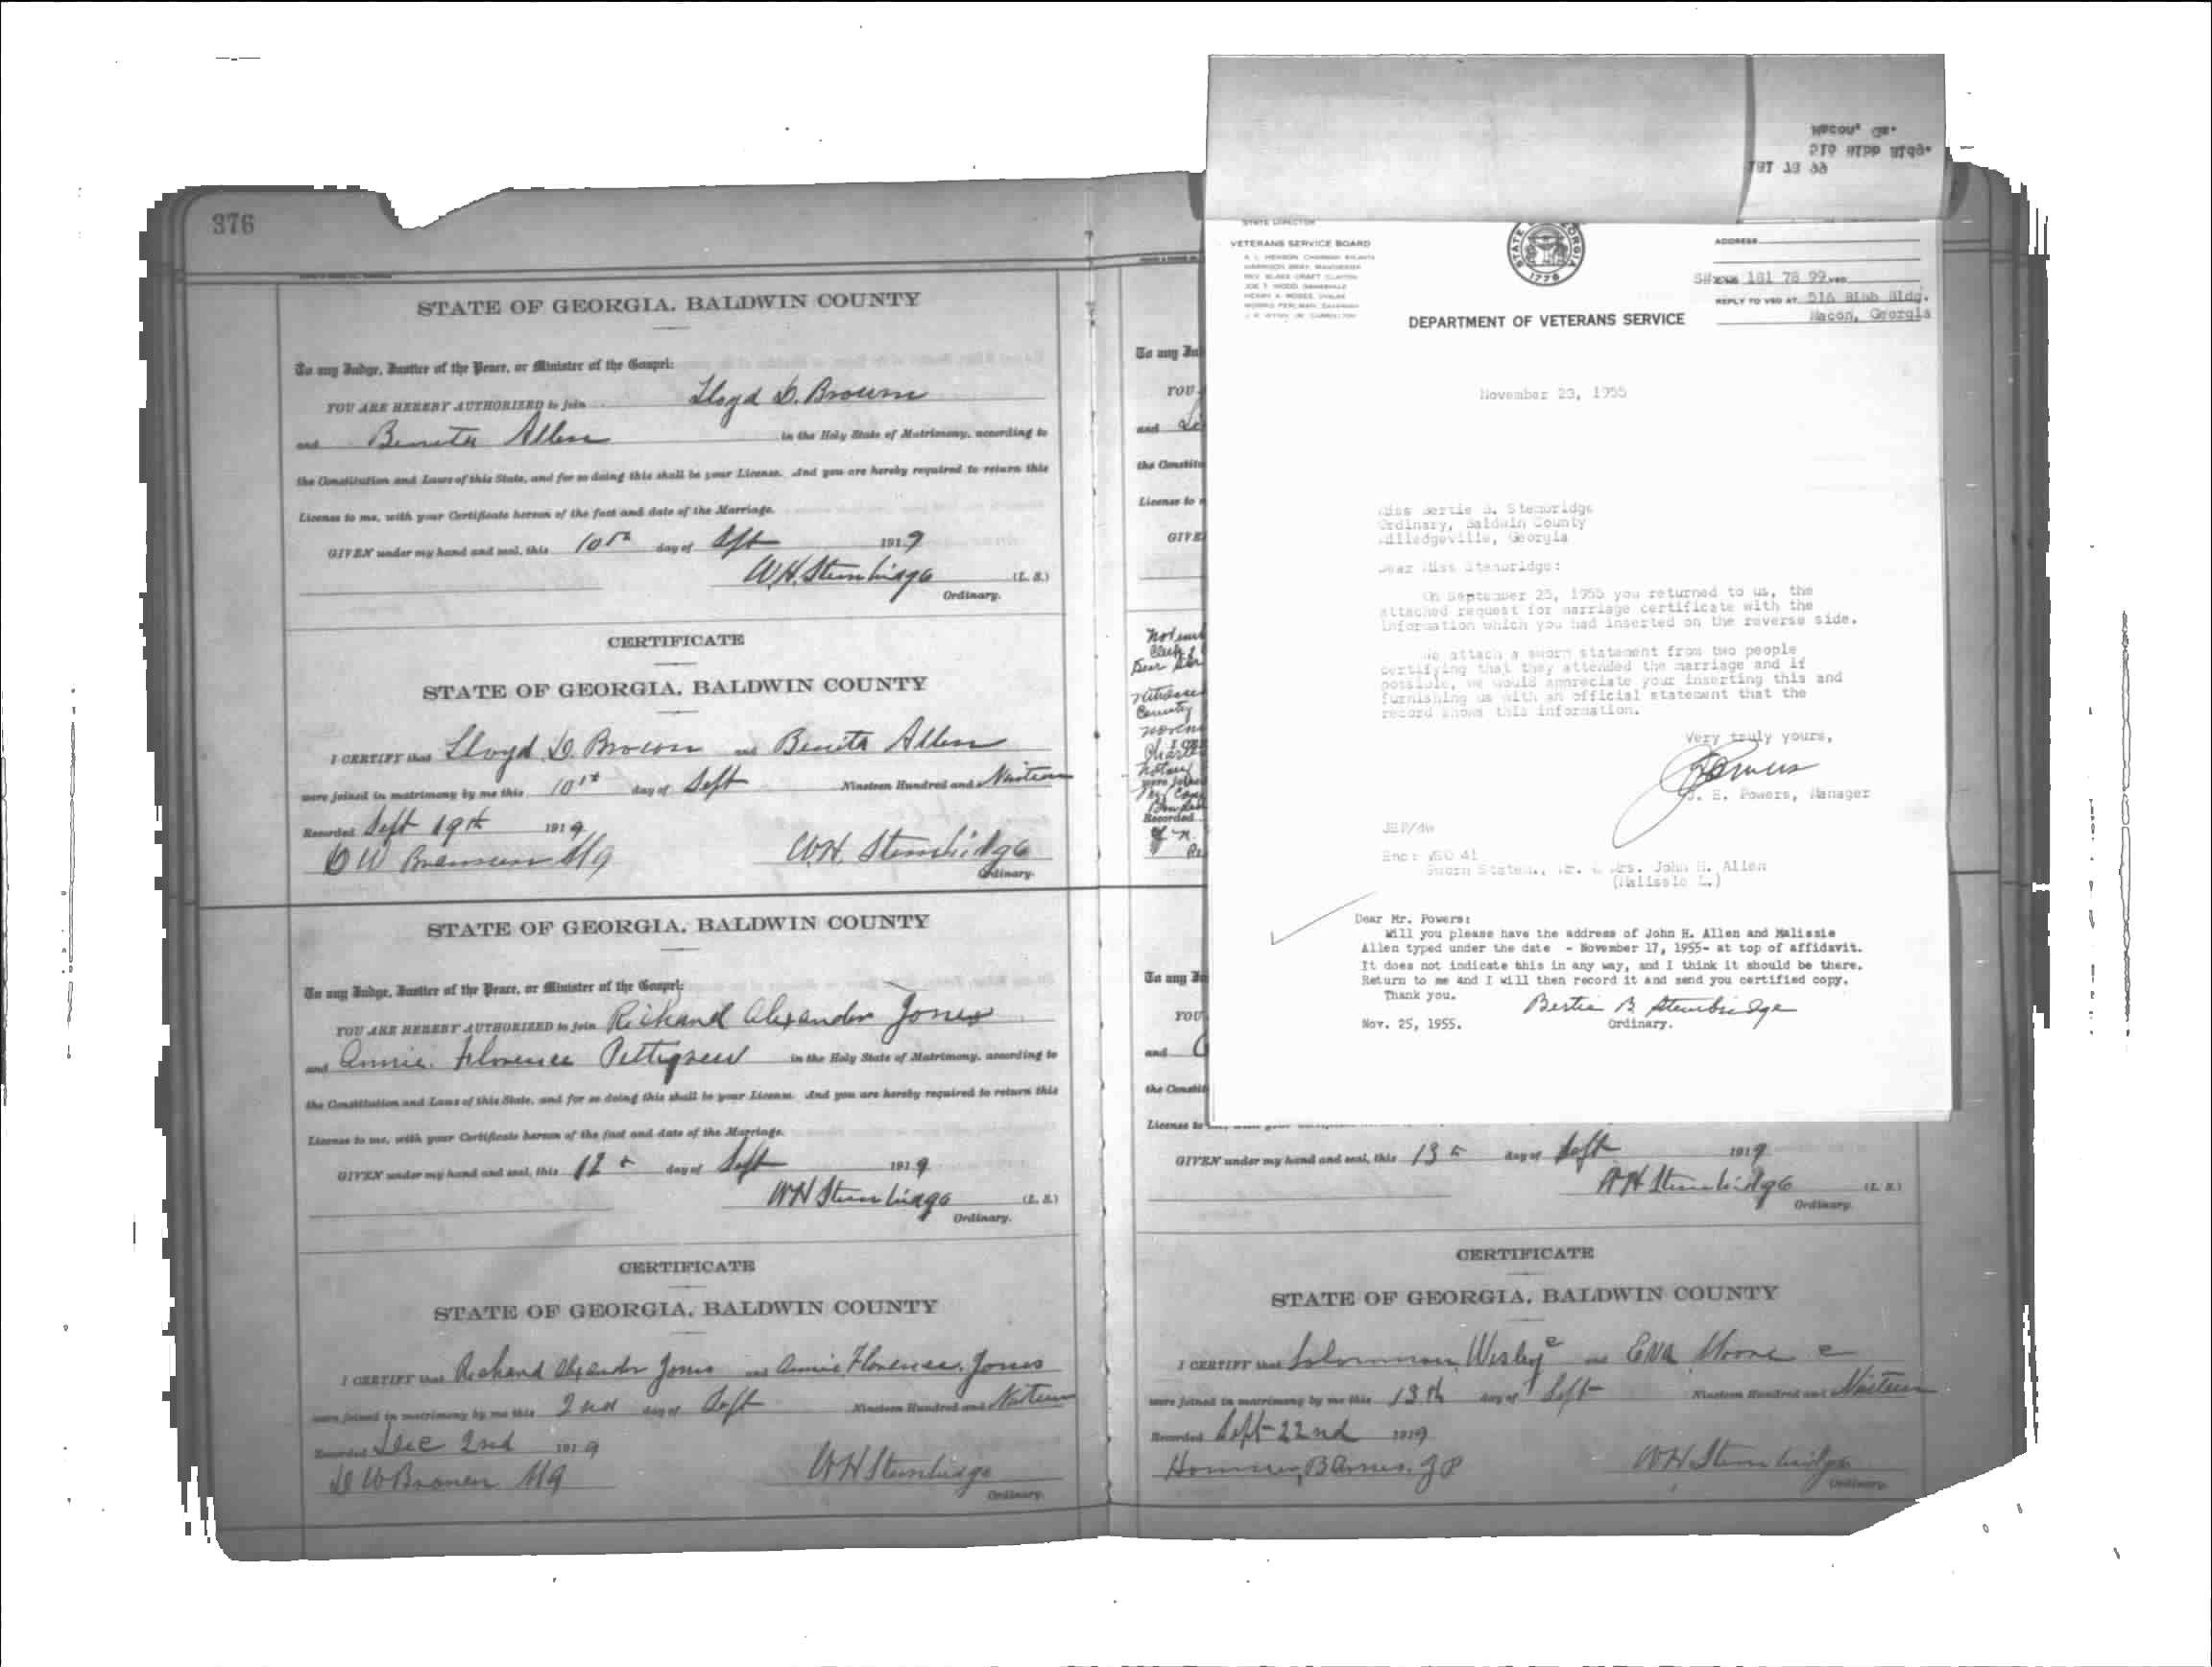 376
STATE OF GEORGIA, BALDWIN COUNTY
To any Judge, Justice of the Peace, or Minister of the Gospel:
YOU ARE HEREBY AUTHORIZED to join Lloyd D. Brown
and Benita Allen in the Holy State of Matrimony, according to
the Constitution and Laws of this State, and for so doing this shall be your License. And you are hereby required to return this
License to me, with your Certificate hereon of the fact and date of the Marriage.
GIVEN under my hand and seal, this 10th day of Sept 1919
W.H. Stembridge (L. S.)
Ordinary.
CERTIFICATE
STATE OF GEORGIA, BALDWIN COUNTY
I CERTIFY that Lloyd D. Brown and Benita Allen
were joined in matrimony by me this 10th day of Sept Nineteen Hundred and Nineteen
Recorded Sept 19th 1919
W.H. Stembridge
Ordinary.
STATE OF GEORGIA, BALDWIN COUNTY
To any Judge, Justice of the Peace, or Minister of the Gospel:
YOU ARE HEREBY AUTHORIZED to join Richard Alexander Jones
and Annie Florence Pettigrew in the Holy State of Matrimony, according to
the Constitution and Laws of this State, and for so doing this shall be your License. And you are hereby required to return this
License to me, with your Certificate hereon of the fact and date of the Marriage.
GIVEN under my hand and seal, this 12th day of Sept 1919
WH Stembridge (L. S.)
Ordinary.
CERTIFICATE
STATE OF GEORGIA, BALDWIN COUNTY
I CERTIFY that Richard Alexander Jones and Annie Florence Jones
were joined in matrimony by me this 2nd day of Sept Nineteen Hundred and Nineteen
Recorded Dec 2nd 1919
WH Stembridge
Ordinary.
Macon, Ga.
STATE DIRECTOR
VETERANS SERVICE BOARD
STATE GEORGIA
1776
ADDRESS
181 78 99
REPLY TO VSO AT 516 Bibb Bldg.
Macon, Georgia
DEPARTMENT OF VETERANS SERVICE
November 23, 1955
Miss Bertie B. Stembridge
Ordinary, Baldwin County
Milledgeville, Georgia
Dear Miss Stembridge:
On September 25, 1955 you returned to us, the
attached request for marriage certificate with the
information which you had inserted on the reverse side.
We attach a sworn statement from two people
certifying that they attended the marriage and if
possible, we would appreciate your inserting this and
furnishing us with an official statement that the
record shows this information.
Very truly yours,
J. E. Powers, Manager
JEP/dw
Enc: VSO 41
Sworn Statem., Mr. & Mrs. John H. Allen
(Malissie L.)
Dear Mr. Powers:
Will you please have the address of John H. Allen and Malissie
Allen typed under the date - November 17, 1955- at top of affidavit.
It does not indicate this in any way, and I think it should be there.
Return to me and I will then record it and send you certified copy.
Thank you.
Bertie B. Stembridge
Nov. 25, 1955. Ordinary.
To any
YOU
and
License to
GIVEN under my hand and seal, this 13th day of Sept 1919
WH Stembridge (L. S.)
Ordinary.
CERTIFICATE
STATE OF GEORGIA, BALDWIN COUNTY
I CERTIFY that Solomman Wesley c and Eva Moore c
were joined in matrimony by me this 13th day of Sept Nineteen Hundred and Nineteen
Recorded Sept-22nd 1919
WH Stembridge
Ordinary.